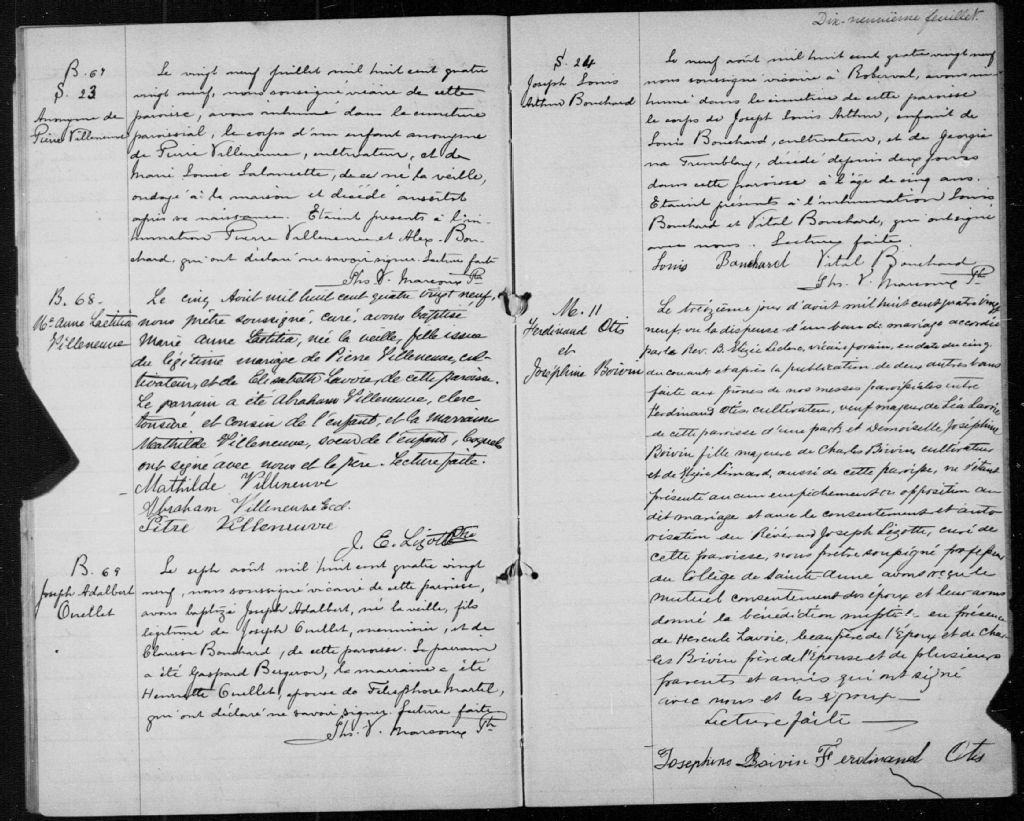 Dix-neuvième feuillet.
B. 67
S. 23
Anonyme de
Pierre Villeneuve
Le vingt neuf juillet mil huit cent quatre
vingt neuf, nous soussigné vicaire de cette
paroisse, avons inhumé dans le cimetière
paroissial, le corps d'un enfant anonyme
de Pierre Villeneuve, cultivateur, et de
Marie Louise Lalancette, de ce né la veille,
ondoyé à la maison et décédé aussitôt
après sa naissance. Etaient presents à l'in-
humation Pierre Villeneuve et Alex. Bou-
chard, qui ont déclaré ne savoir signer. Lecture faite
Ths. V. Marcoux Ptre
B. 68-
Me Anne Laetitia
Villeneuve
Le cinq Août mil huit cent quatre vingt neuf,
nous prêtre soussigné, curé, avons baptisé
Marie Anne Laetitia, née la veille, fille issue
du légitime mariage de Pierre Villeneuve, cul-
tivateur, et de Elisabeth Lavoie, de cette paroisse.
Le parrain a été Abraham Villeneuve, clerc
tonsuré et cousin de l'enfant, et la marraine
Mathilde Villeneuve, soeur de l'enfant, lesquels
ont signé avec nous et le père. Lecture faite.
Mathilde Villeneuve
Abraham Villeneuve Eccl.
Pitre Villeneuvre
J. E. Lizotte Ptre
B. 69
Joseph Adalbert
Ouellet
Le sept août mil huit cent quatre vingt
neuf, nous soussigné vicaire de cette paroisse,
avons baptizé Joseph Adalbert, né la veille, fils
légitime de Joseph Ouellet, menuisier, et de
Bouchard, de cette paroisse. Le parrain
a été Gaspard Bergeron, la marraine a été
Henriette Ouellet, épouse de Télesphore Martel,
qui ont déclaré ne savoir signer. Lecture faite
Ths. V. Marcoux Ptre
S. 24
Joseph Louis
Arthur Bouchard
Le neuf août mil huit cent quatre vingt neuf
nous soussigné vicaire à Roberval, avons in-
humé dans le cimetière de cette paroisse
le corps de Joseph Louis Arthur, enfant de
Louis Bouchard, cultivateur, et de Georgia-
na Tremblay, décédé depuis deux jours
dans cette paroisse à l'âge de cinq ans.
Etaient présents à l'inhumation Louis
Bouchard et Vital Bouchard, qui ont signé
avec nous. Lecture faite.
Louis Bouchard Vital Bouchard
Ths. V. Marcoux Ptre
M. 11
Ferdinand Otis
et
Joséphine Boivin
Le treizième jour d'août mil huit cent quatre vingt
neuf, vu la dispense d'un banc de mariage accordée
par le Rev. B. Elzéar Leclerc, vicaire forain, en date du cinq
du courant et après la publication de deux autres bans
faite aux prônes de nos messes paroissiales entre
Ferdinand Otis, cultivateur, veuf majeur de Léa Lavoie
de cette paroisse d'une part; et Demoiselle Joséphine
Boivin fille majeure de Charles Boivin, cultivateur
et de Simard, aussi de cette paroisse, ne s'étant
présenté aucun empêchement ou opposition au
dit mariage et avec le consentement et auto-
risation du Révérend Joseph Lizotte, curé de
cette paroisse, nous prêtre soussigné professeur
au Collège de Sainte Anne avons reçu le
mutuel consentement des époux et leur avons
donné la bénédiction nuptiale en présence
de Hercule Lavoie, beau père de l'Epoux et de Char-
les Boivin frère de l'Epouse et de plusieurs
parents et amis qui ont signé
avec nous et les époux —
Lecture faite —
Josephine Boivin Ferdinand Otis